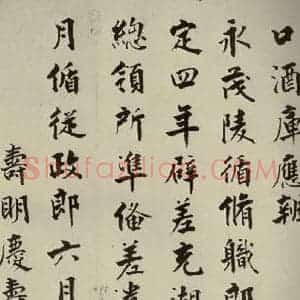 口酒庫應朝
永茂陵循脩職郎
定四年辟差充湖
總領所準俻差
月循從政郎六月
壽明慶壽